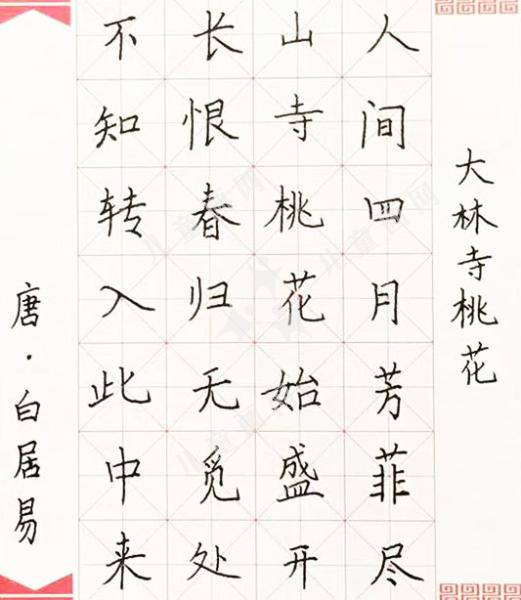 大林寺桃花
人间四月芳菲尽
山寺桃花始盛开
长恨春归无觅处
不知转入此中来
唐·白居易